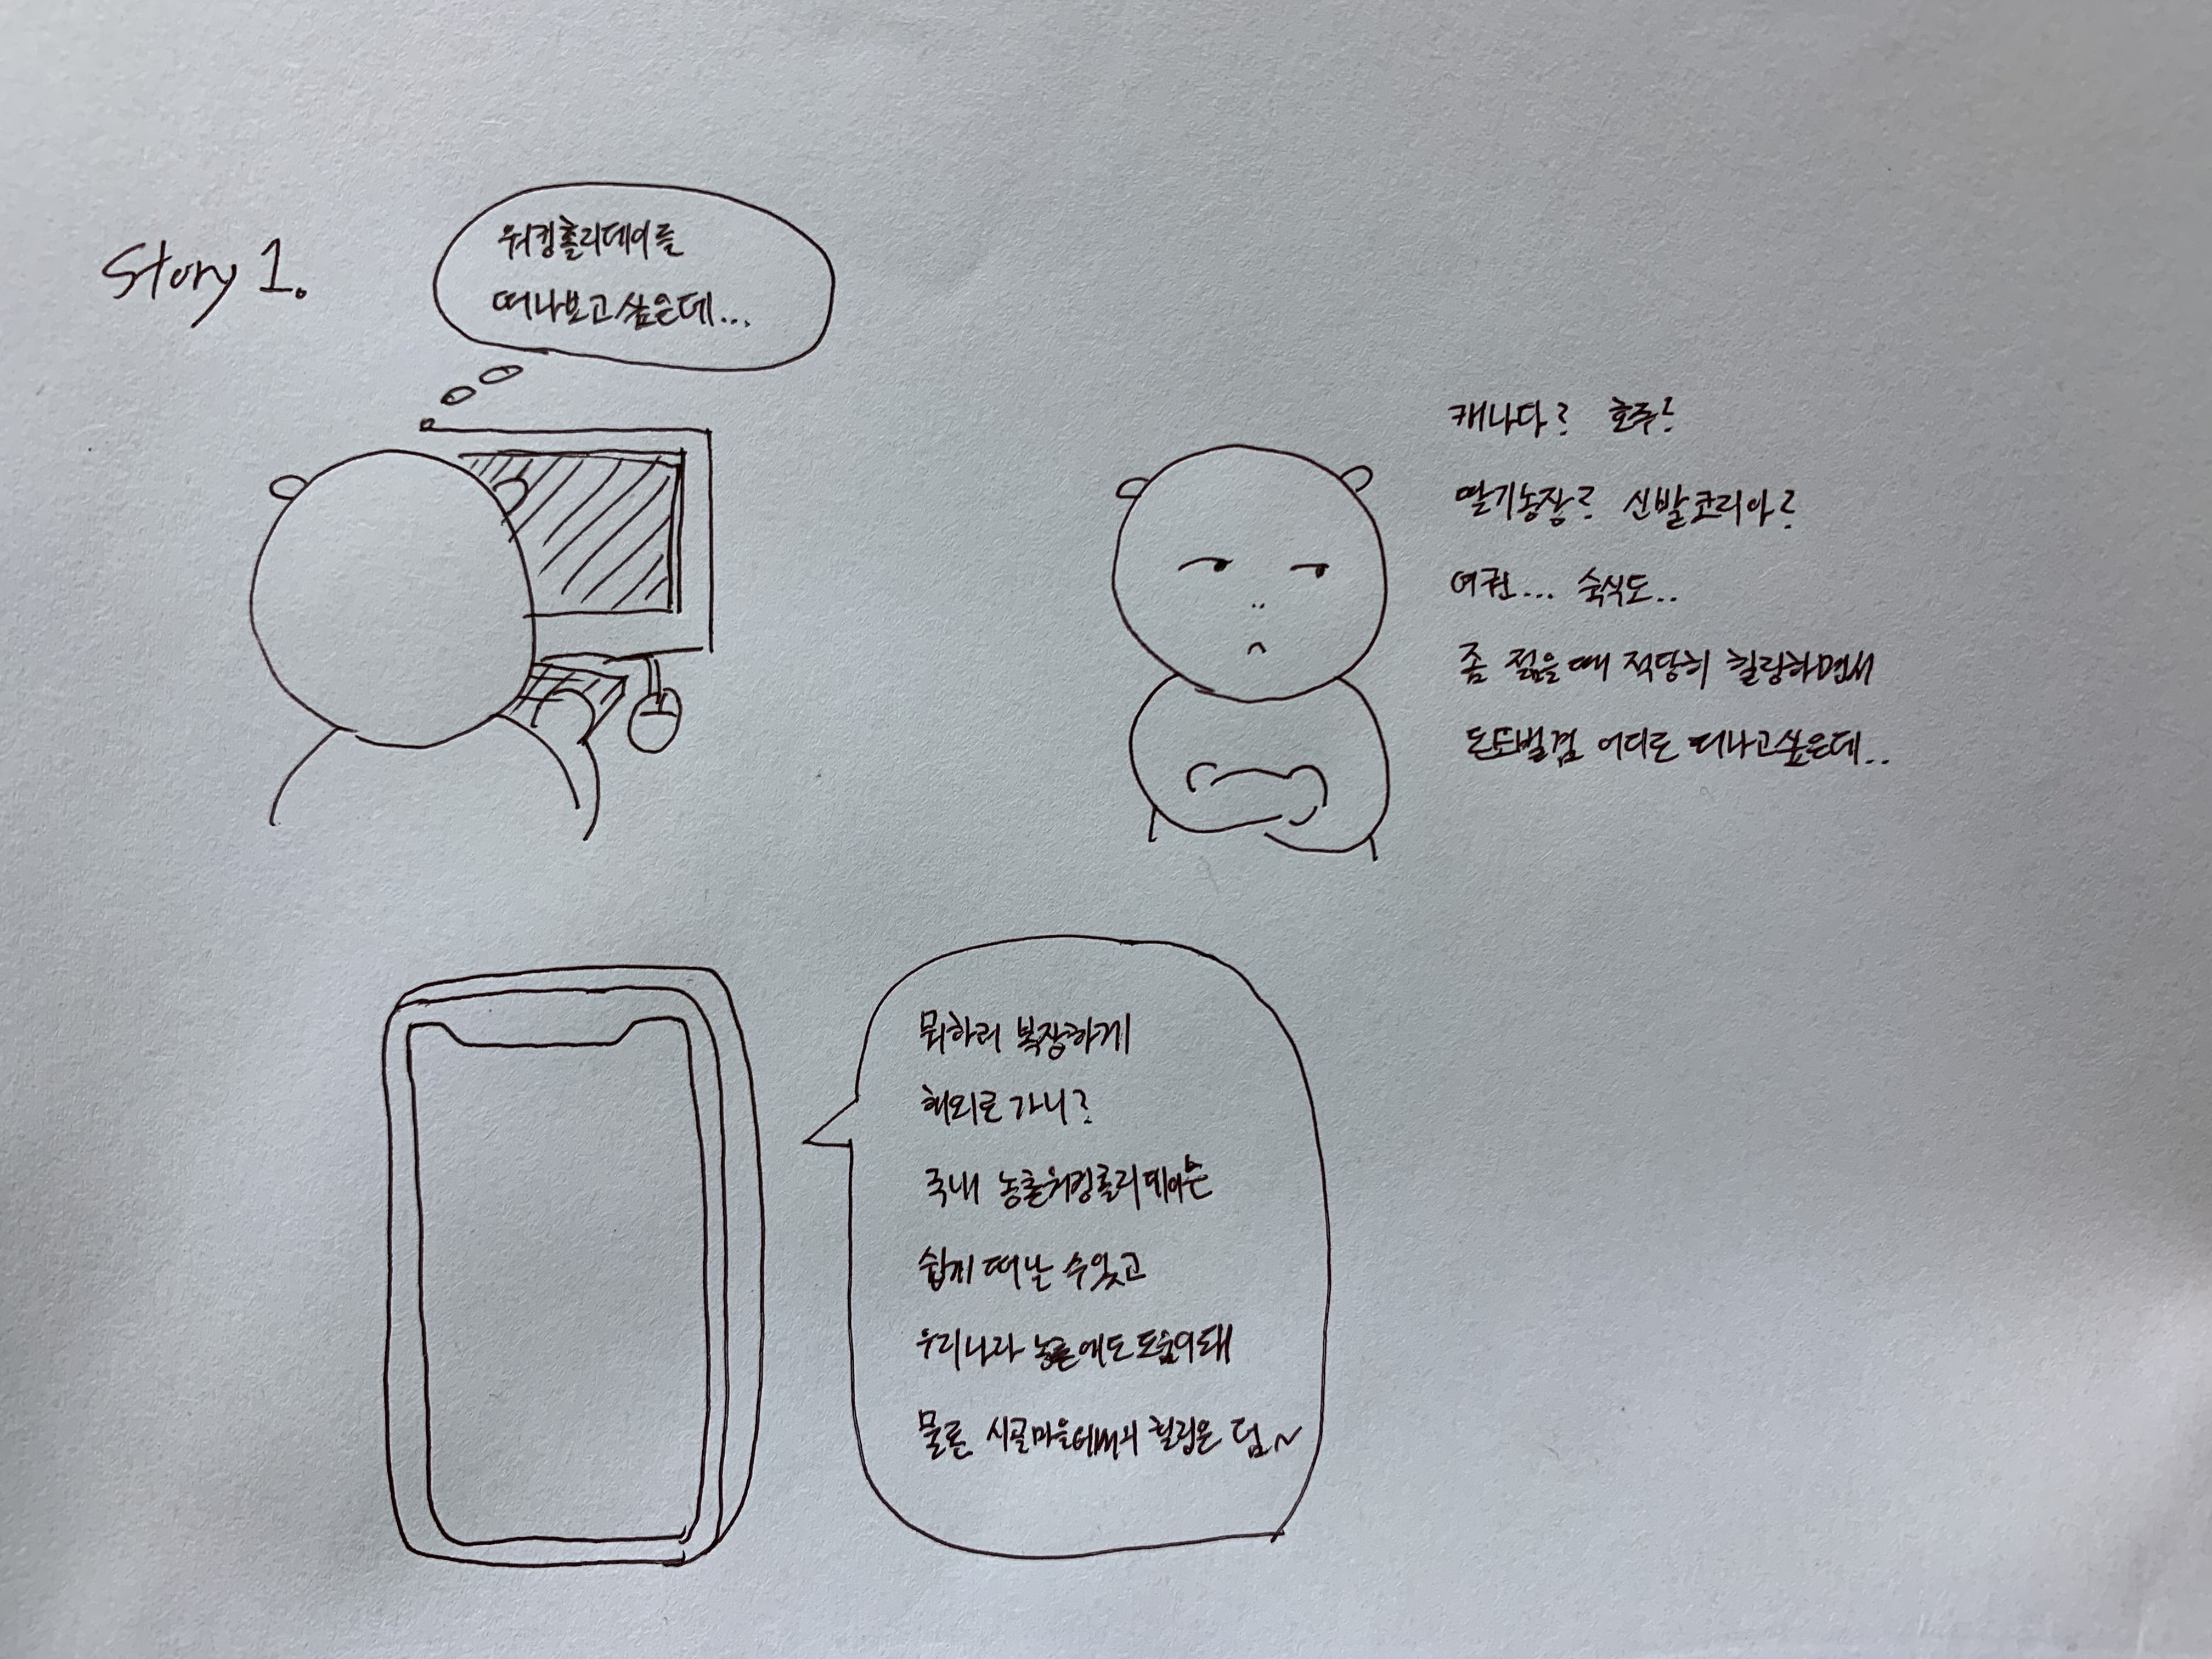 Story 1.
워킹홀리데이를
떠나보고싶은데...
캐나다? 호주?
딸기농장? 신발코리아?
여권... 숙식도..
좀 젊을때 적당히 힐링하면서
돈도벌겸 어디로 떠나고싶은데..
뭐하러 복잡하게
해외로 가니?
국내 농촌워킹홀리데이는
쉽게 떠날 수있고
우리나라 농촌에도 도움이돼
물론 시골마을에서의 힐링은 덤~